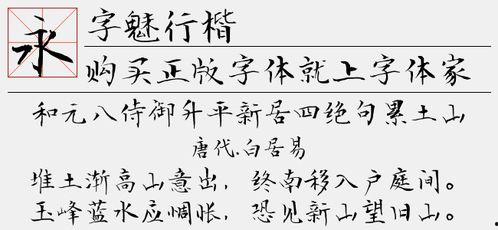 永
字魅行楷
购买正版字体就上字体家
和元八侍御升平新居四绝句累土山
唐代.白居易
堆土渐高山意出，终南移入户庭间。
玉峰蓝水应惆怅，恐见新山望旧山。